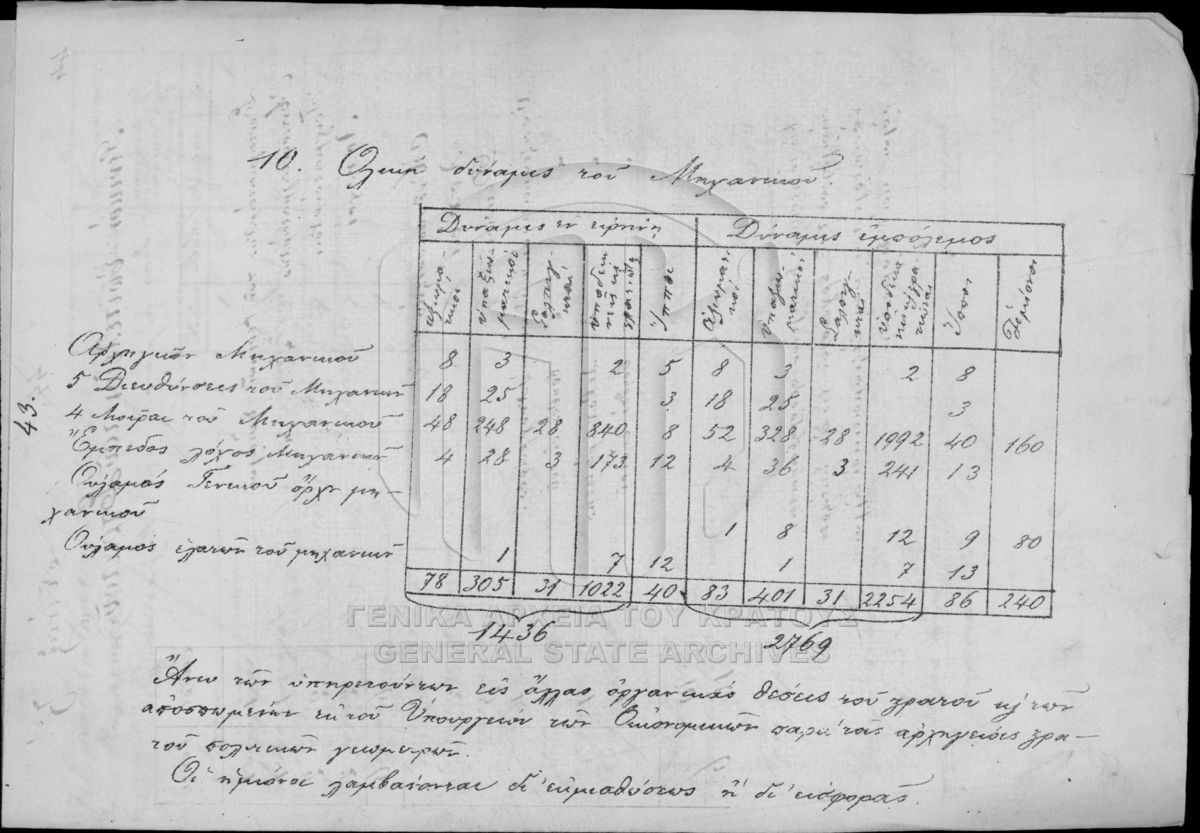 10. Ολική δύναμις τοῦ Μηχανικοῦ.
Δύναμις ἐν εἰρήνῃ Δύναμις ἐμπόλεμος
Ἀξιωματικοί Ὑπαξιωματικοί Σαλπιγκταί Ἵπποι Ἀξιωματικοί Ὑπαξιωματικοί Σαλπιγκταί Ἵπποι Ἡμίονοι
Αρχηγεῖον Μηχανικοῦ 8 3 2 5 8 3 2 8
5 Διευθύνσεις τοῦ Μηχανικοῦ 18 25 3 18 25 3
4 Μοῖραι τοῦ Μηχανικοῦ 48 248 28 840 8 52 328 28 1992 40 160
Ἔμπεδος λόχος Μηχανικοῦ 4 28 3 173 12 4 36 3 241 13
Ουλαμός Γενικοῦ μη-
χανικοῦ 1 8 12 9 80
Ουλαμός ἐλατῶν τοῦ μηχανικοῦ 1 7 12 1 7 13
78 305 31 1022 40 83 401 31 2254 86 240
1436 2769
43.
ΓΕΝΙΚΑ ΑΡΧΕΙΑ ΤΟΥ ΚΡΑΤΟΥΣ
GENERAL STATE ARCHIVES
Ἄνευ τῶν ὑπηρετούντων εἰς ἄλλας ὀργανικάς θέσεις τοῦ στρατοῦ κ τῶν
ἀποσπωμένων ἐκ τοῦ Ὑπουργείου τῶν Οἰκονομικῶν παρά ταῖς ἀρχηγείοις στρα-
τοῦ πολιτικῶν γεωμετρῶν.
Οἱ ἡμίονοι λαμβάνονται δι' ἐκμισθώσεως ἤ δι' εἰσφορᾶς.